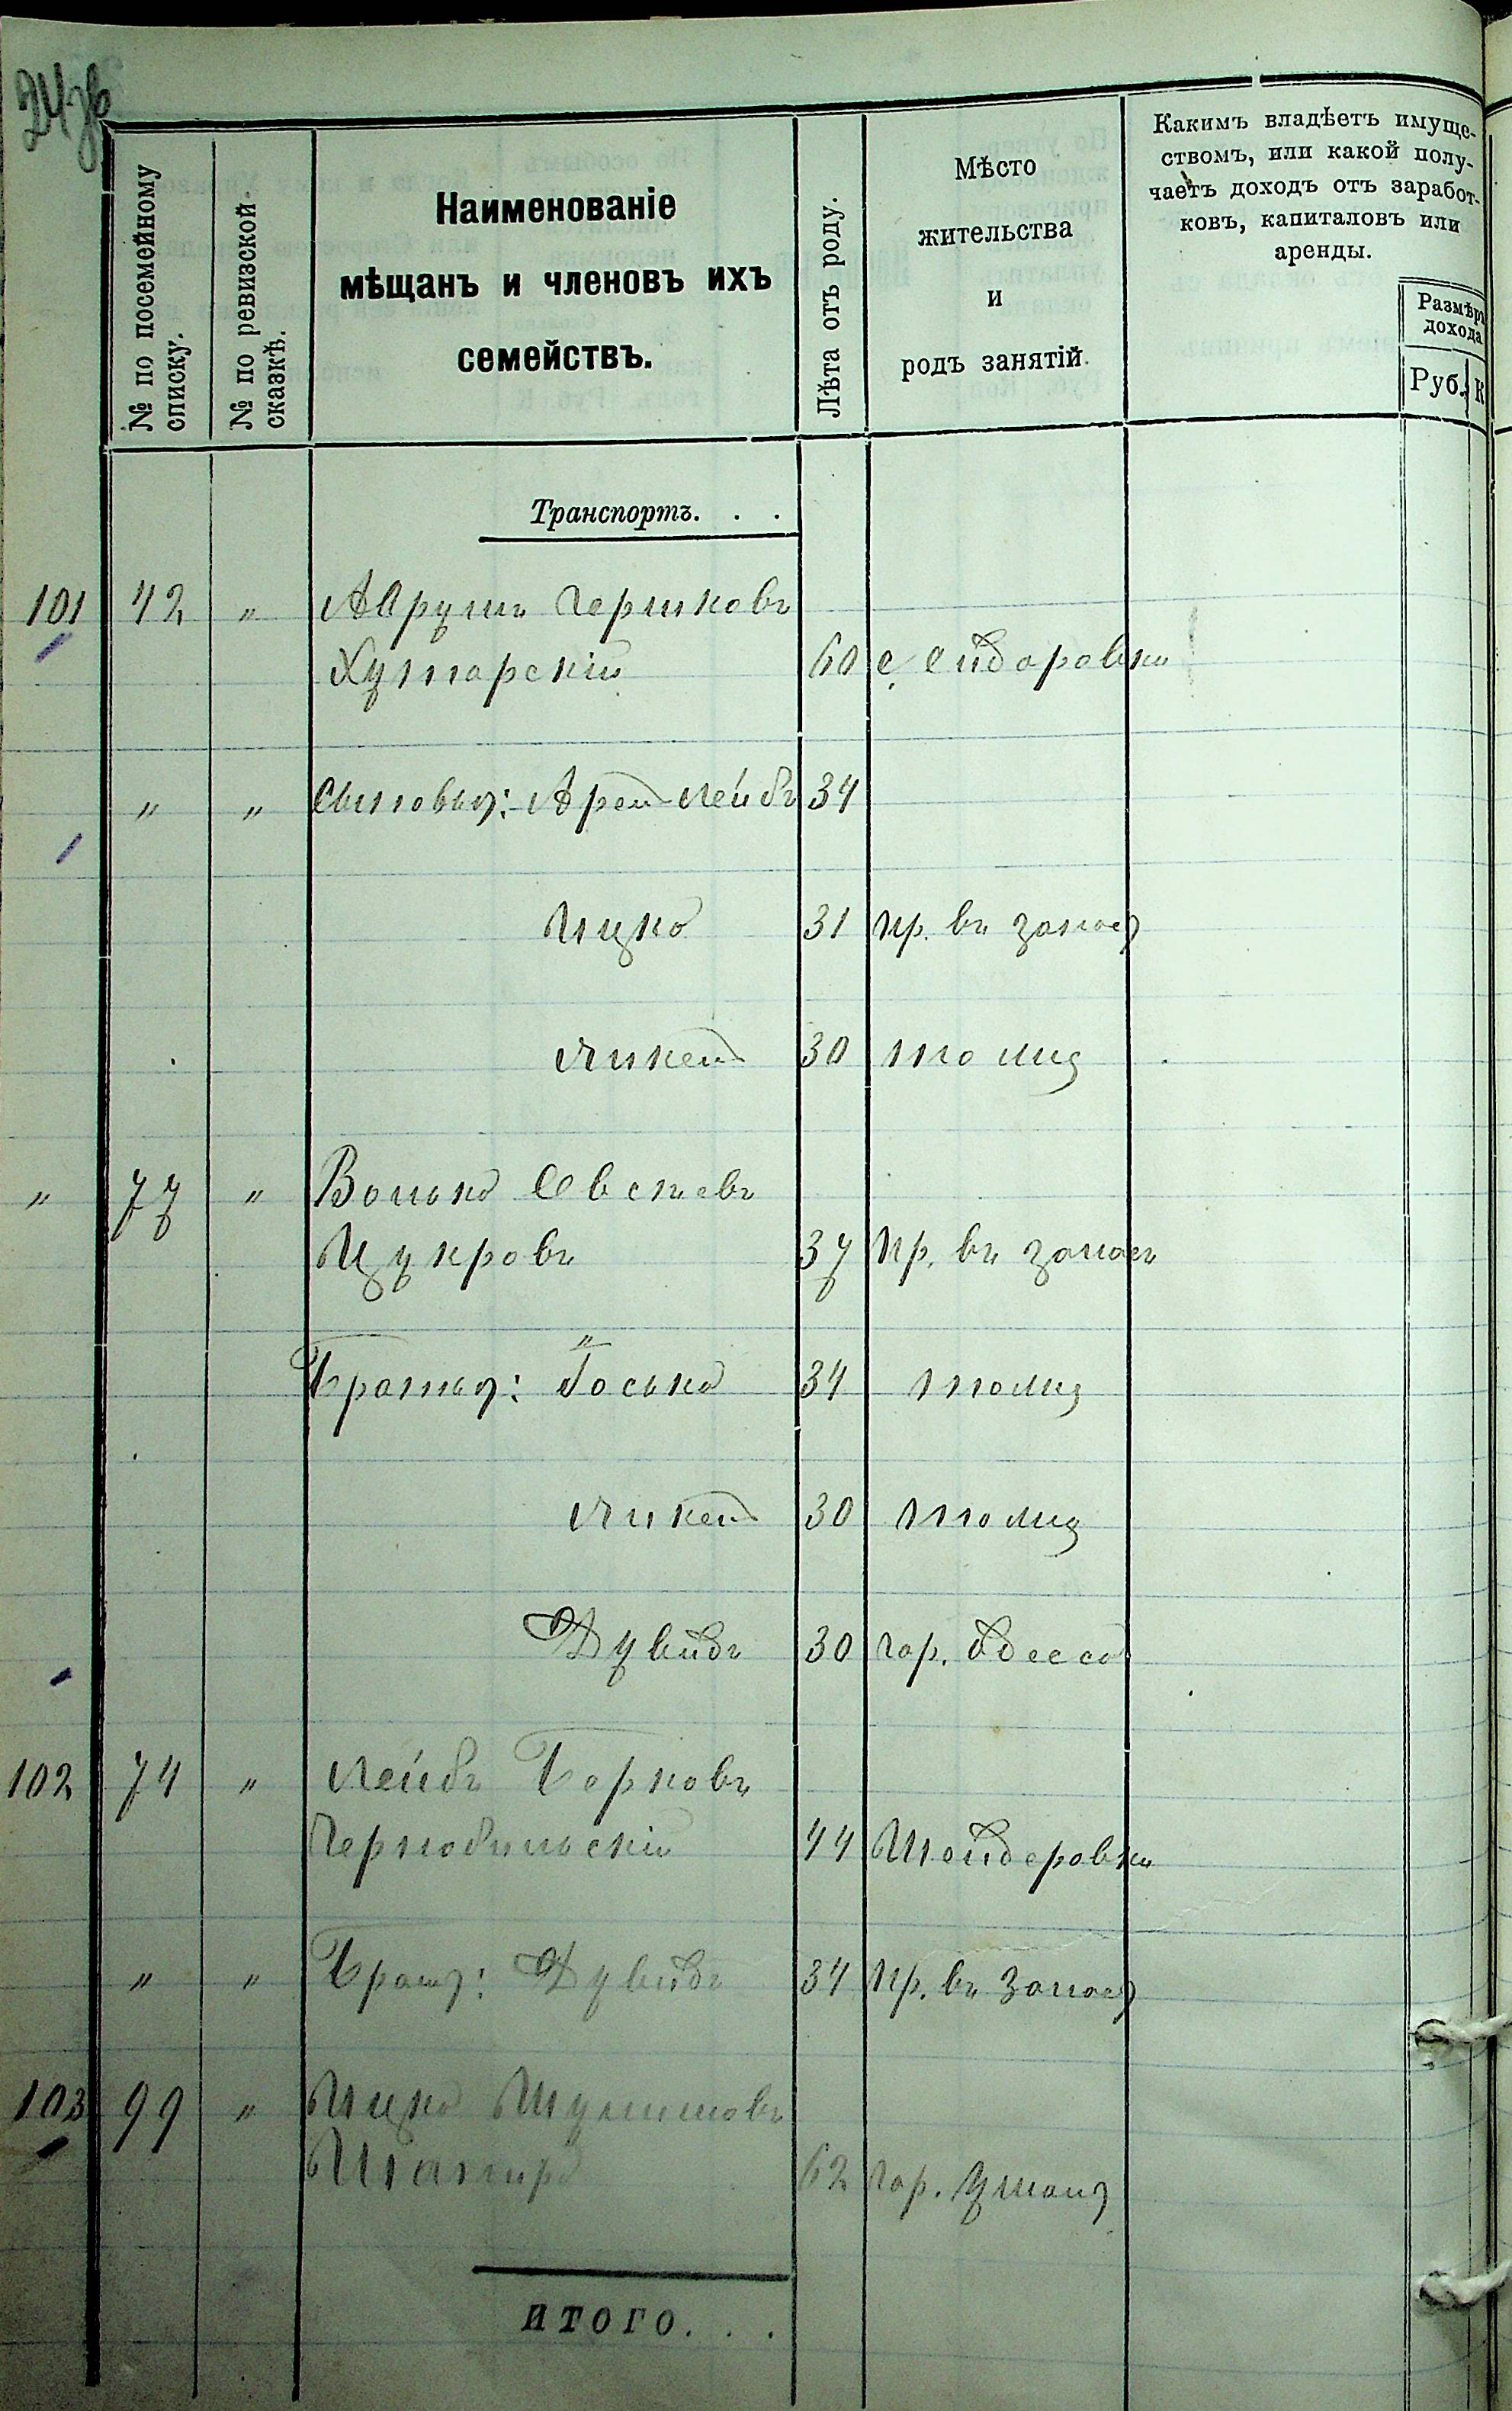 24 зв
№ по посемейному
списку.
№ по ревизской
сказкѣ.
Наименованіе
мѣщанъ и членовъ ихъ
семействъ.
Лѣта отъ роду.
Мѣсто
жительства
и
родъ занятій.
Какимъ владѣетъ имуще-
ствомъ, или какой полу-
чаетъ доходъ отъ заработ-
ковъ, капиталовъ или
аренды.
Размѣръ
дохода
Руб. К
Транспортъ. . .
101 42 " Аврумъ Гершковъ
Хуторскій 60 с. Сидоровки
" " Сыновья: Арон Лейбъ 34
Ицко 31 пр. въ запас
Янкель 30 тоже
" 77 " Волько Овсѣевъ
Цукровъ 37 пр. въ запасъ
Братья: Іосько 34 тоже
Янкель 30 тоже
Дувидъ 30 гор. Одесса
102 74 " Лейбъ Берковъ
Чернобыльскій 44 Шендеровки
" " Братъ: Дувидъ 34 пр. въ запас
103 99 " Ицко Шулимовъ
Шапиро 62 гор. Умань
ИТОГО. . .